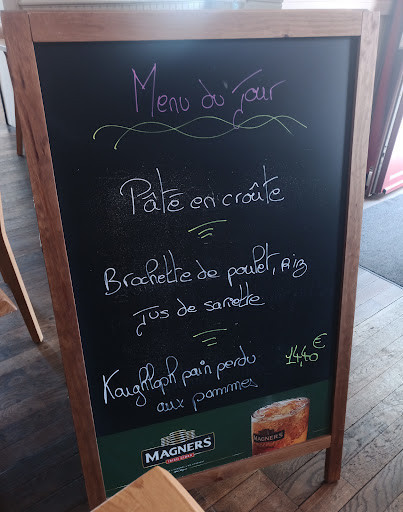 Menu du Jour
Pâté en croûte
Brochette de poulet, Riz
Jus de sarriette
Koughloph pain perdu
aux pommes
14,40 €
MAGNERS
MAGNERS